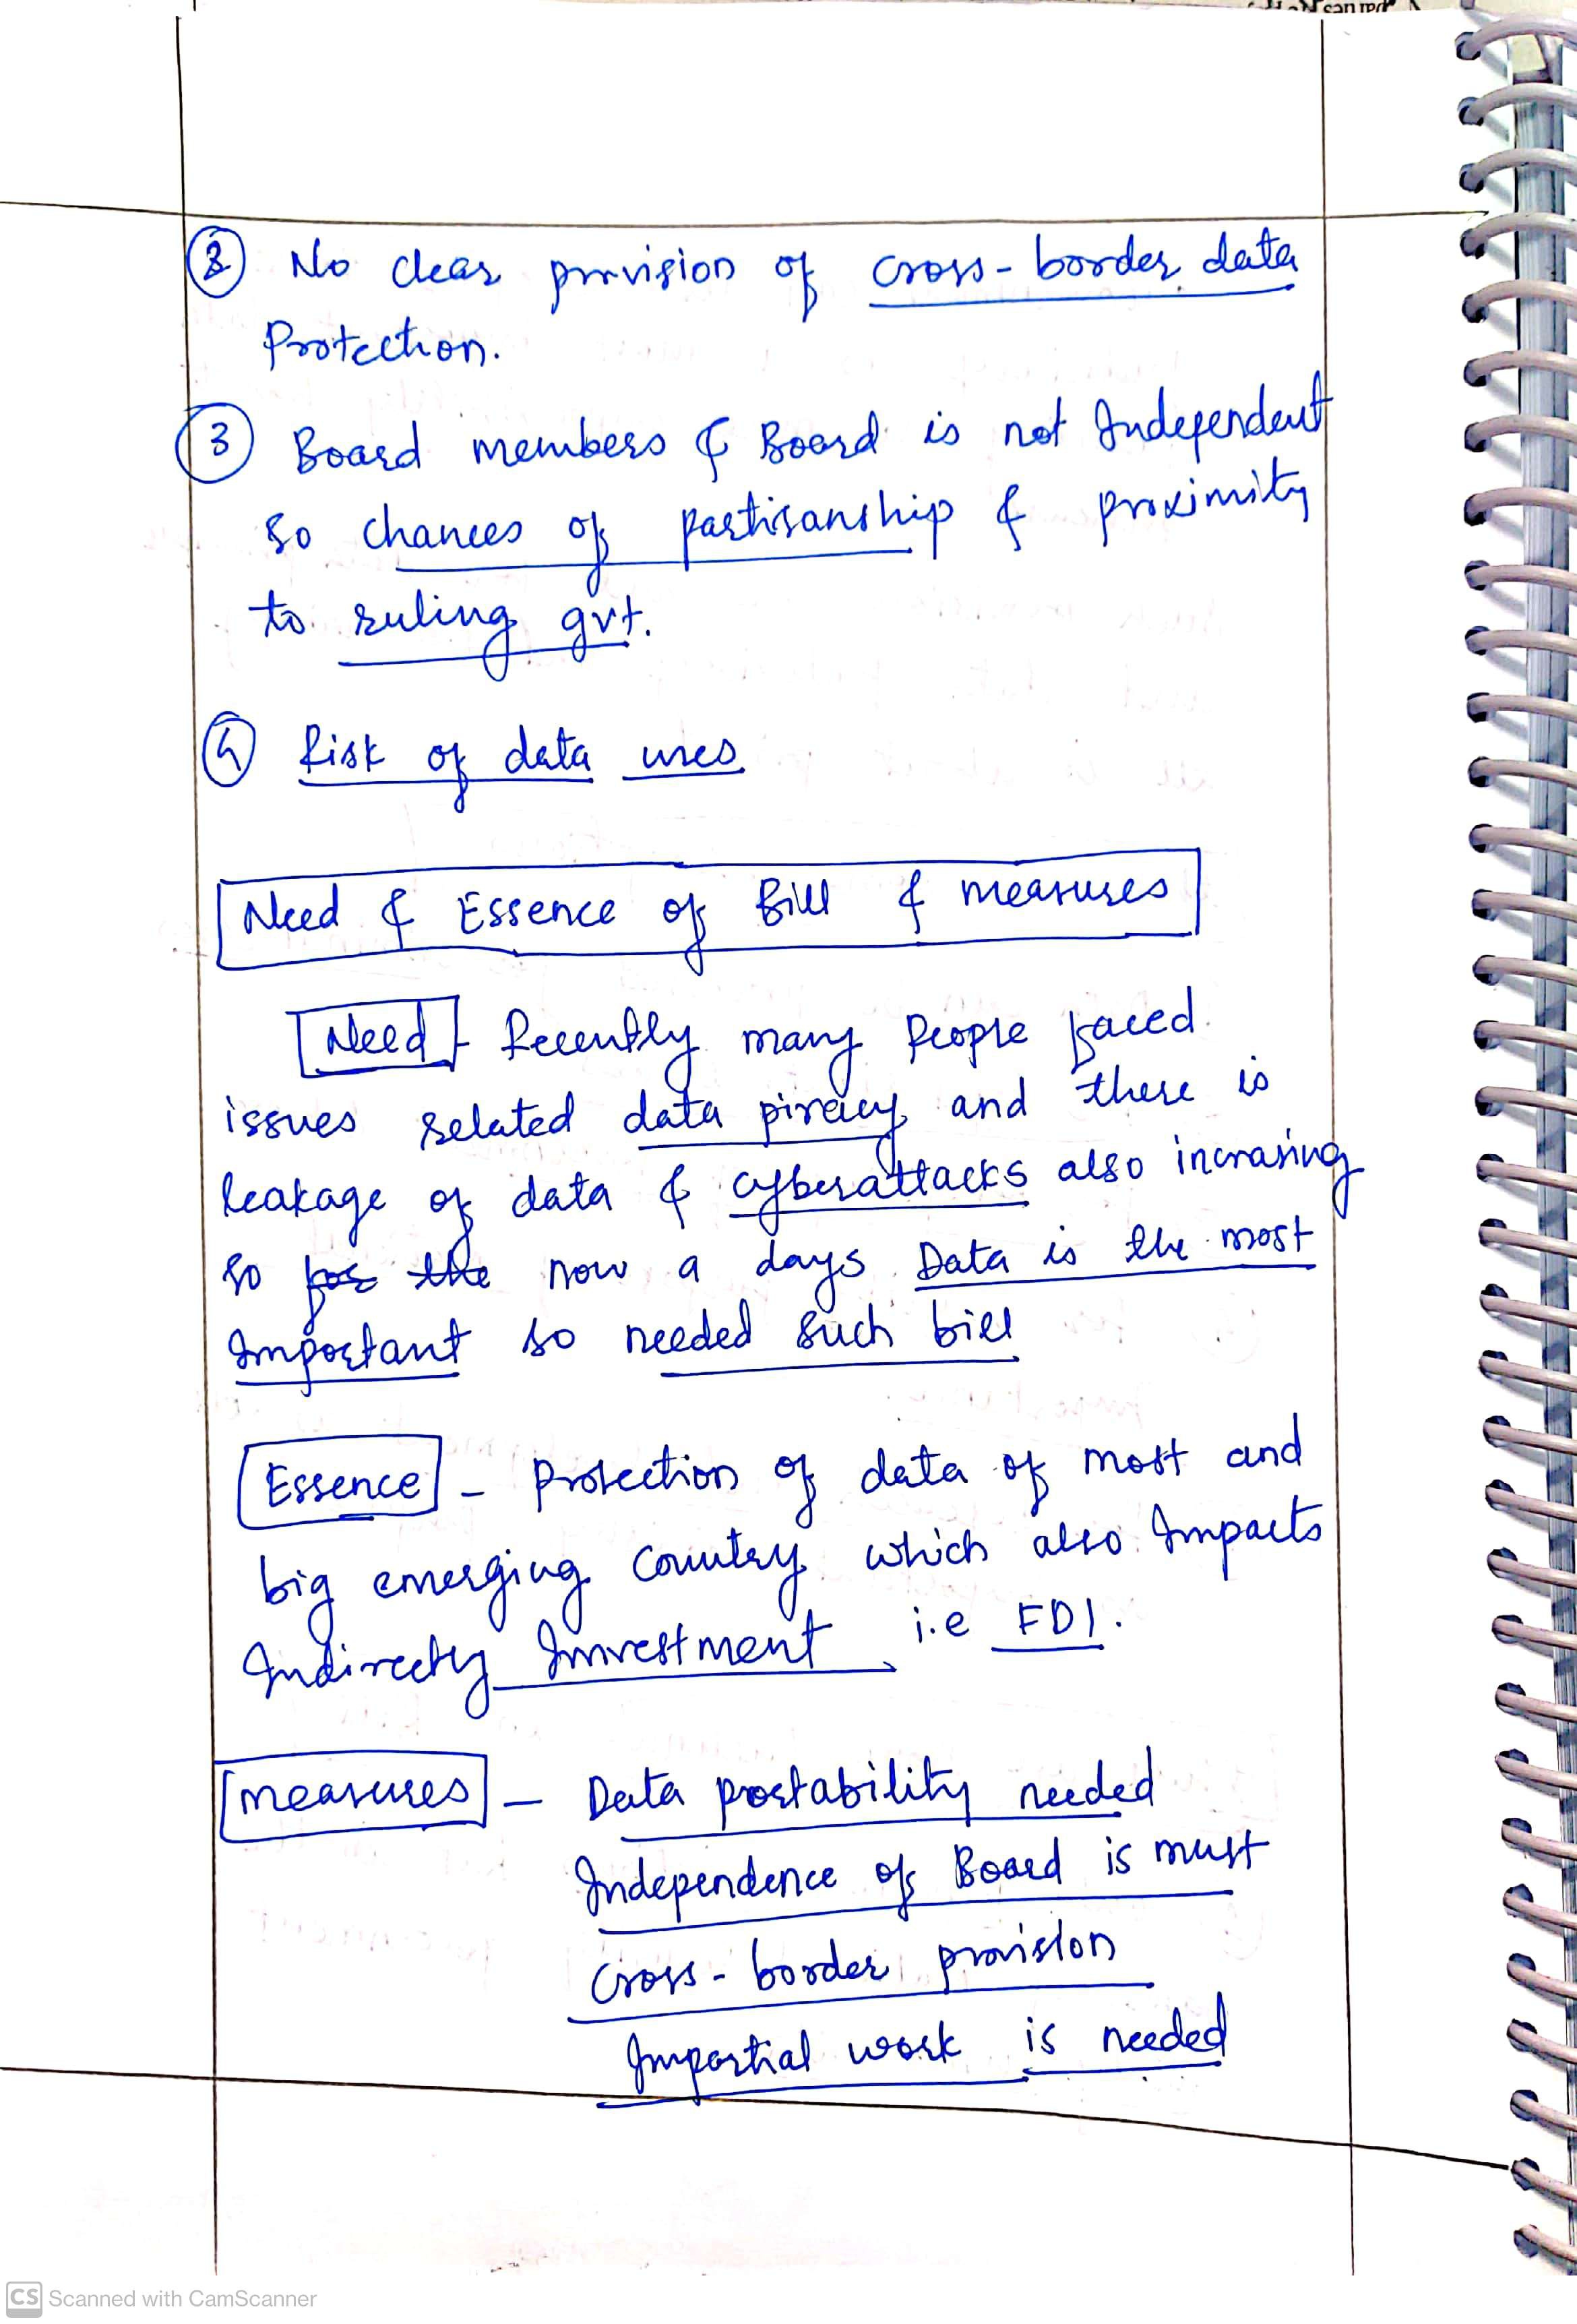 ② No clear provision of cross-border data
Protection.
③ Board members & Board is not Independent
so chances of partisanship & proximity
to ruling gvt.
④ Risk of data uses
Need & Essence of Bill & measures
Need - Recently many People faced
issues related data piracy and there is
leakage of data & cyberattacks also incrasing
so for the now a days Data is the most
Important so needed such bill
Essence - Protection of data of most and
big emerging country which also Impacts
Indirectly Investment i.e FDI.
measures - Data portability needed
Independence of Board is must
Cross-border provision
Impartial work is needed
CS Scanned with CamScanner